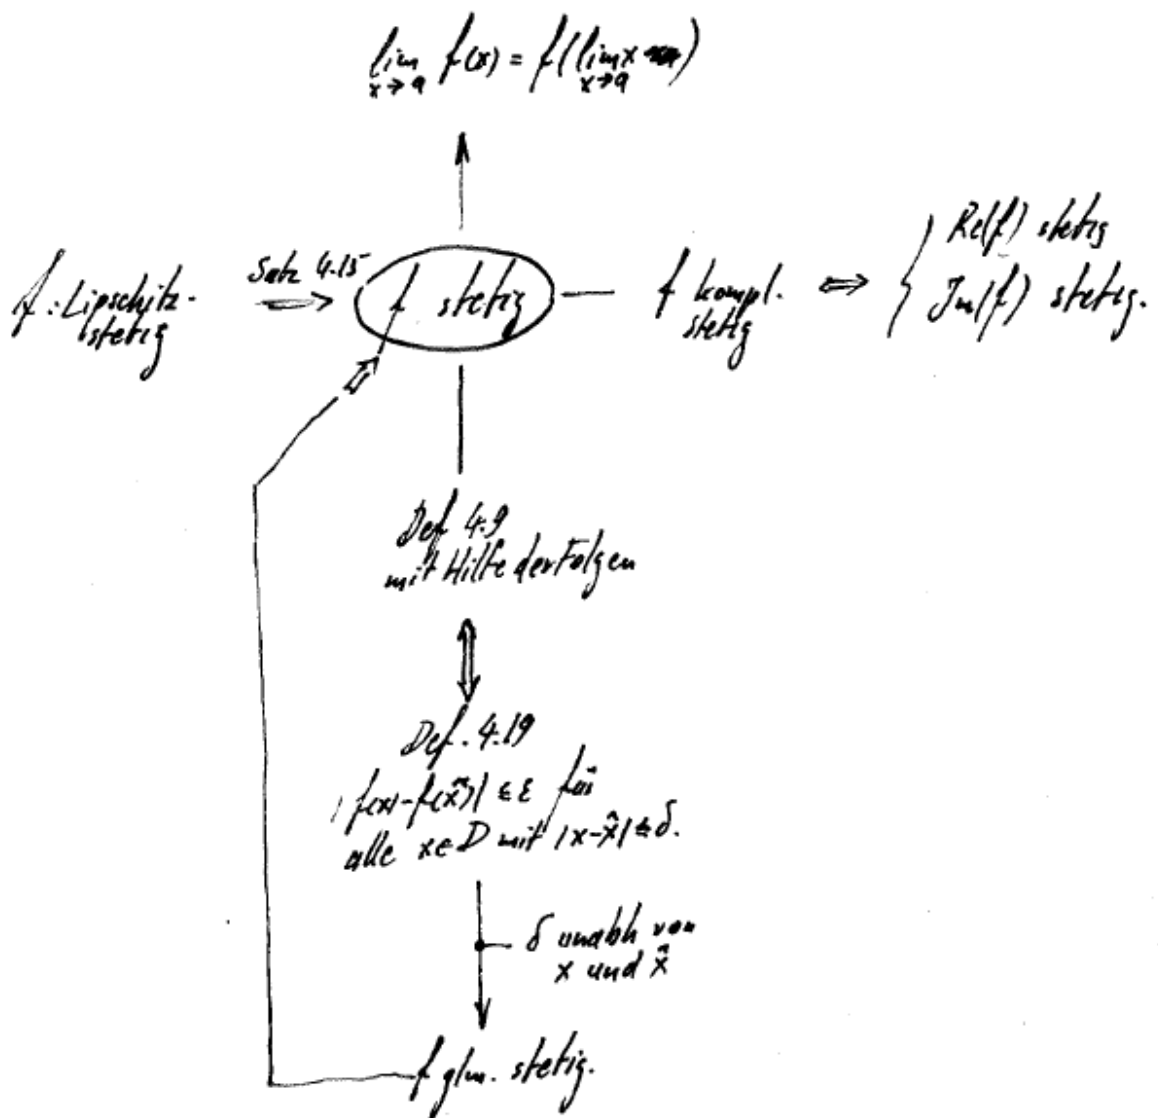 lim f(x) = f(lim x)
x→a x→a
Satz 4.15
f: Lipschitz-
stetig
⇒
f stetig
f kompl.
stetig
⇔
Re(f) stetig
Im(f) stetig.
Def 4.9
mit Hilfe der Folgen
Def. 4.19
|f(x)-f(x̂)| ≤ ε für
alle x∈D mit |x-x̂| ≤ δ.
δ unabh von
x und x̂
f glm. stetig.